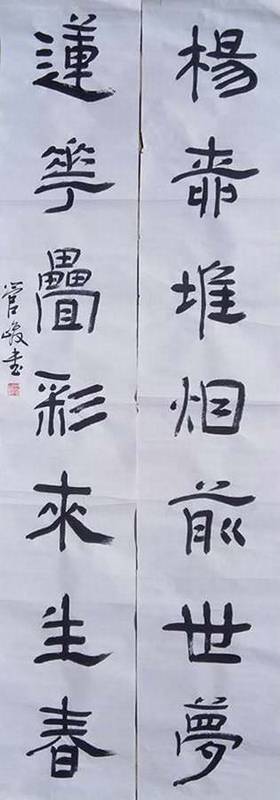 楊柳堆烟前世夢
蓮花疊彩來生春
管峻書